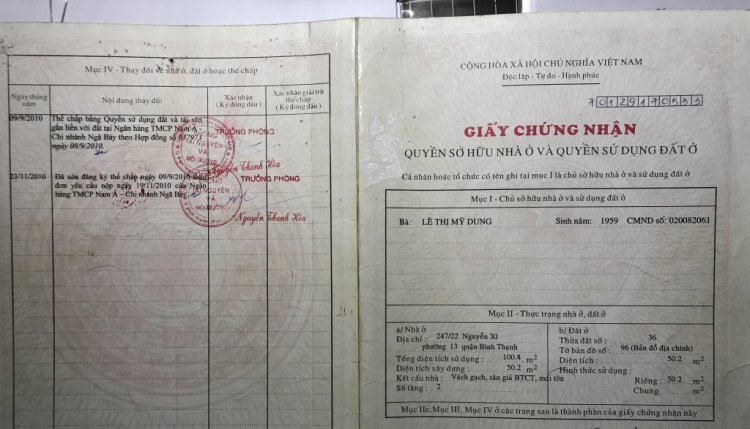 Mục IV - Thay đổi về nhà ở, đất ở hoặc thế chấp
Ngày tháng năm
Nội dung thay đổi
Xác nhận (Ký đóng dấu)
Xác nhận giải trừ thế chấp (Ký đóng dấu)
09/9/2010
Thế chấp bằng Quyền sử dụng đất và tài sản
gắn liền với đất tại Ngân hàng TMCP Nam Á
Chi nhánh Ngã Bảy theo Hợp đồng số
ngày 08/9/2010.
TRƯỞNG PHÒNG
TÀI NGUYÊN
VÀ
MÔI TRƯỜNG
Nguyễn Thanh Hòa
23/11/2010
Đã xóa đăng ký thế chấp ngày 09/9/2010 theo
đơn yêu cầu nộp ngày 19/11/2010 của Ngân
hàng TMCP Nam Á – Chi nhánh Ngã Bảy
TRƯỞNG PHÒNG
TÀI NGUYÊN
VÀ
MÔI TRƯỜNG
Nguyễn Thanh Hòa
CỘNG HÒA XÃ HỘI CHỦ NGHĨA VIỆT NAM
Độc lập - Tự do - Hạnh phúc
70129170533
GIẤY CHỨNG NHẬN
QUYỀN SỞ HỮU NHÀ Ở VÀ QUYỀN SỬ DỤNG ĐẤT Ở
Cá nhân hoặc tổ chức có tên ghi tại mục I là chủ sở hữu nhà ở và sử dụng đất ở
Mục I - Chủ sở hữu nhà ở và sử dụng đất ở
Bà: LÊ THỊ MỸ DUNG Sinh năm: 1959 CMND số: 020082061
Mục II - Thực trạng nhà ở, đất ở
a/ Nhà ở
Địa chỉ : 247/22 Nguyễn Xí
phường 13 quận Bình Thạnh
Tổng diện tích sử dụng : 100.4 m2
Diện tích xây dựng : 50.2 m2
Kết cấu nhà : Vách gạch, sàn giả BTCT, mái tôn
Số tầng : 2
b/ Đất ở
Thửa đất số: 36
Tờ bản đồ số: 96 (Bản đồ địa chính)
Diện tích : 50.2 m2
Hình thức sử dụng:
Riêng : 50.2 m2
Chung m2
Mục IIc, Mục III, Mục IV ở các trang sau là thành phần của giấy chứng nhận này